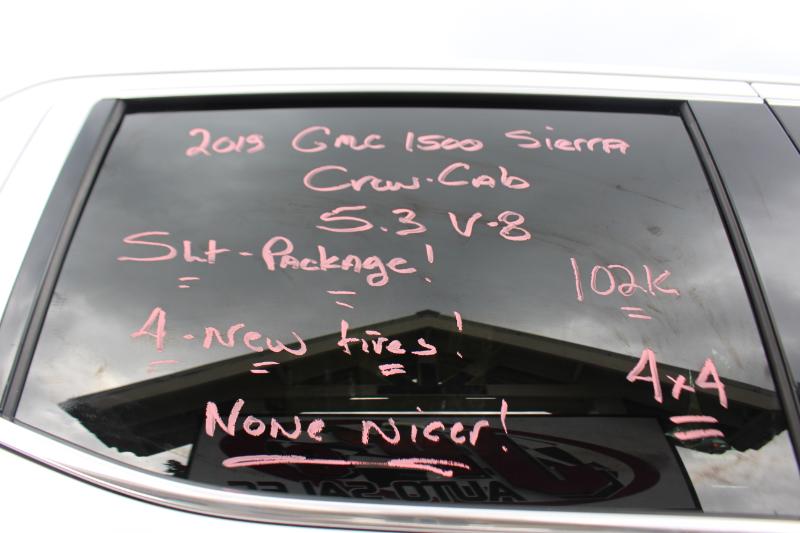 2015 GMC 1500 Sierra
Crew-Cab
5.3 V-8
SLt-Package!
102K
4-New tires!
4x4
None Nicer!
AUTO-SALES